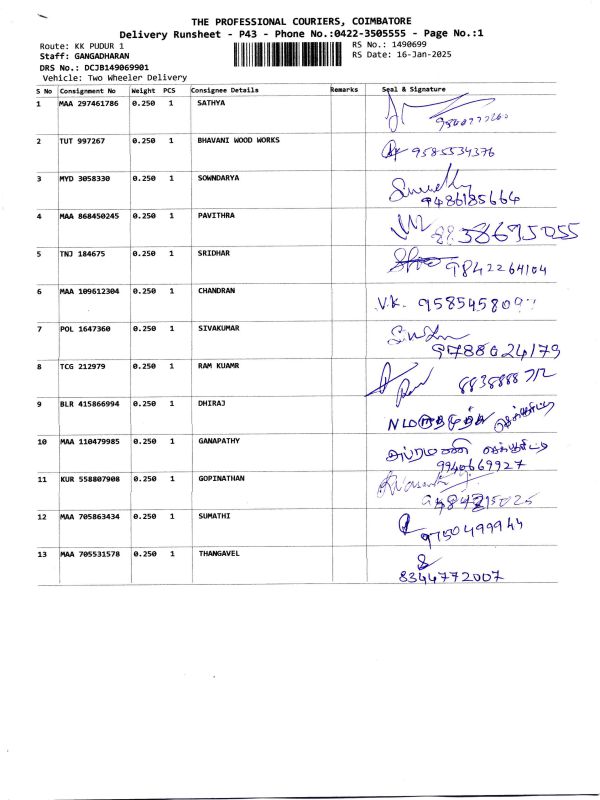 THE PROFESSIONAL COURIERS, COIMBATORE
Delivery Runsheet - P43 - Phone No.:0422-3505555 - Page No.:1
Route: KK PUDUR 1 RS No.: 1490699
Staff: GANGADHARAN RS Date: 16-Jan-2025
DRS No.: DCJB149069901
Vehicle: Two Wheeler Delivery
S No Consignment No Weight PCS Consignee Details Remarks Seal & Signature
1 MAA 297461786 0.250 1 SATHYA
2 TUT 997267 0.250 1 BHAVANI WOOD WORKS 9585534376
3 MYD 3058330 0.250 1 SOWNDARYA
9486185664
4 MAA 868450245 0.250 1 PAVITHRA 8838695055
5 TNJ 184675 0.250 1 SRIDHAR 9842264104
6 MAA 109612304 0.250 1 CHANDRAN V.K.
7 POL 1647360 0.250 1 SIVAKUMAR
9788624179
8 TCG 212979 0.250 1 RAM KUAMR
9 BLR 415866994 0.250 1 DHIRAJ
10 MAA 110479985 0.250 1 GANAPATHY
9940669927
11 KUR 558807908 0.250 1 GOPINATHAN
12 MAA 705863434 0.250 1 SUMATHI
9750499944
13 MAA 705531578 0.250 1 THANGAVEL
8344772007